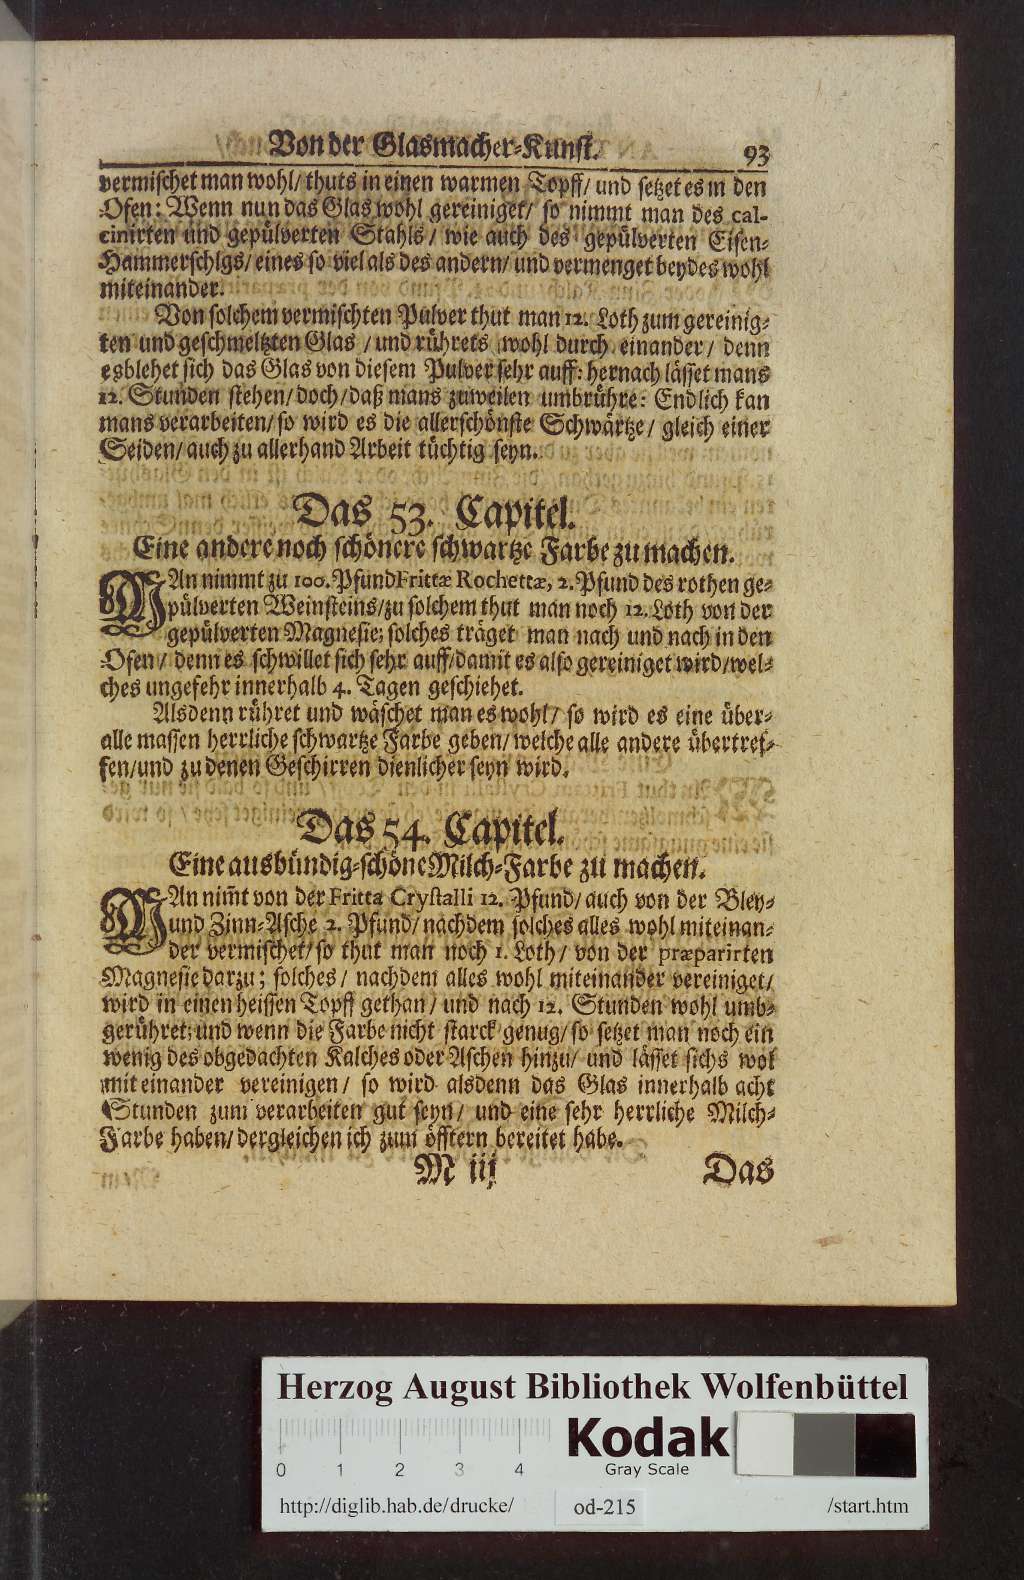 Von der Glasmacher-Kunst. 93
vermischet man wohl/ thuts in einen warmen Topff/ und setzet es in den
Ofen: Wenn nun das Glas wohl gereiniget/ so nimmt man des cal-
cinirten und gepülverten Stahls/ wie auch des gepülverten Eisen-
Hammerschlgs/ eines so viel als des andern/ und vermenget beydes wohl
miteinander.
Von solchem vermischten Pulver thut man 12. Loth zum gereinig-
ten und geschmeltzten Glas/ und rührets wohl durch einander/ denn
es blehet sich das Glas von diesem Pulver sehr auff: hernach lässet mans
12. Stunden stehen/ doch/ daß mans zuweilen umbrühre: Endlich kan
mans verarbeiten/ so wird es die allerschönste Schwärtze/ gleich einer
Seiden/ auch zu allerhand Arbeit tüchtig seyn.
Das 53. Capitel.
Eine andere noch schönere schwartze Farbe zu machen.
MAn nimmt zu 100. Pfund Frittæ Rochettæ, 2. Pfund des rothen ge-
pülverten Weinsteins/ zu solchem thut man noch 12. Loth von der
gepülverten Magnesie; solches träget man nach und nach in den
Ofen/ denn es schwillet sich sehr auff/ damit es also gereiniget wird/ wel-
ches ungefehr innerhalb 4. Tagen geschiehet.
Alsdenn rühret und wäschet man es wohl/ so wird es eine über-
alle massen herrliche schwartze Farbe geben/ welche alle andere übertref-
fen/ und zu denen Geschirren dienlicher seyn wird.
Das 54. Capitel.
Eine ausbündig-schöne Milch-Farbe zu machen.
MAn nim̄t von der Fritta Crystalli 12. Pfund/ auch von der Bley-
und Zinn-Asche 2. Pfund/ nachdem solches alles wohl miteinan-
der vermischet/ so thut man noch 1. Loth/ von der præparirten
Magnesie darzu; solches/ nachdem alles wohl miteinander vereiniget/
wird in einen heissen Topff gethan/ und nach 12. Stunden wohl umb-
gerühret; und wenn die Farbe nicht starck genug/ so setzet man noch ein
wenig des obgedachten Kalches oder Aschen hinzu/ und lässet sichs wol
mit einander vereinigen/ so wird alsdenn das Glas innerhalb acht
Stunden zum verarbeiten gut seyn/ und eine sehr herrliche Milch-
Farbe haben/ dergleichen ich zum öfftern bereitet habe.
M iij Das
Herzog August Bibliothek Wolfenbüttel
Kodak
0 1 2 3 4 Gray Scale
http://diglib.hab.de/drucke/ od-215 /start.htm